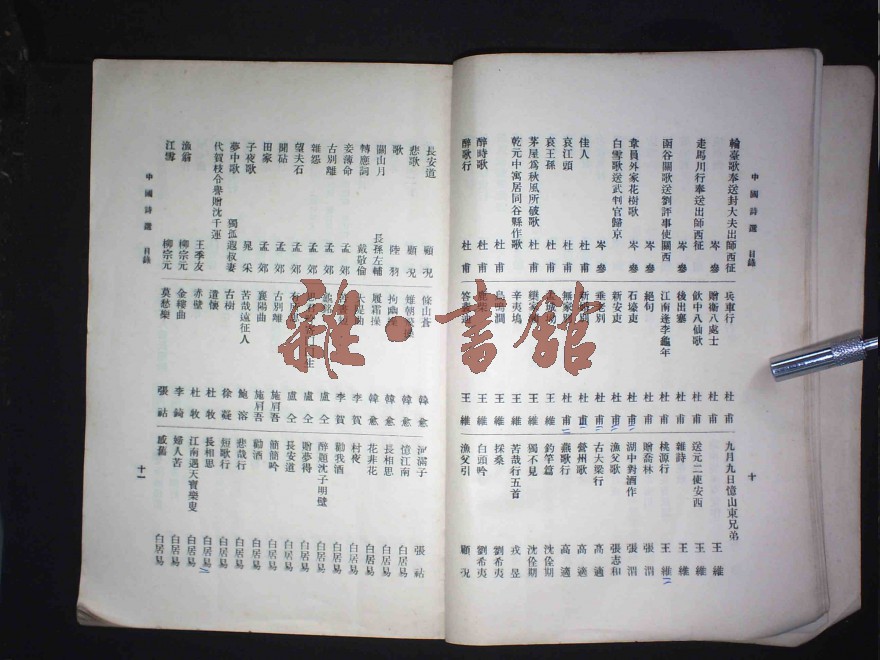 中國詩選 目錄
十
輪臺歌奉送封大夫出師西征
岑參
走馬川行奉送出師西征
岑參
函谷關歌送劉評事使關西
岑參
韋員外家花樹歌 岑參
白雪歌送武判官歸京
岑參
佳人 杜甫
哀江頭 杜甫
哀王孫 杜甫
茅屋爲秋風所破歌 杜甫
乾元中寓居同谷縣作歌
杜甫
醉時歌 杜甫
醉歌行 杜甫
兵車行 杜甫
贈衛八處士 杜甫
飲中八仙歌 杜甫
後出塞 杜甫
江南逢李龜年 杜甫
絕句 杜甫
石壕吏 杜甫
新安吏 杜甫
垂老別 杜甫
新婚別 杜甫
無家別 杜甫
孟城坳 王維
欒家瀨 王維
辛夷塢 王維
鳥鳴澗 王維
鹿柴 王維
答裴迪 王維
九月九日憶山東兄弟
王維
送元二使安西 王維
雜詩 王維
桃源行 王維
贈喬林 張謂
湖中對酒作 張謂
漁父歌 張志和
古大梁行 高適
營州歌 高適
燕歌行 高適
釣竿篇 沈佺期
獨不見 沈佺期
苦哉行五首 戎昱
採桑 劉希夷
白頭吟 劉希夷
漁父引 顧況
長安道 顧況
悲歌 顧況
歌 陸羽
關山月 長孫左輔
轉應詞 戴敬倫
妾薄命 孟郊
古別離 孟郊
雜怨 孟郊
望夫石 孟郊
聞砧 孟郊
田家 孟郊
子夜歌 晁采
夢中歌 獨孤遐叔妻
代賀枝令譽贈沈千運
王季友
漁翁 柳宗元
江雪 柳宗元
條山蒼 韓愈
雉朝飛操 韓愈
拘幽操 韓愈
履霜操 韓愈
大堤曲 李賀
李賀
盧仝
盧仝
盧仝
古別離 施肩吾
襄陽曲 施肩吾
苦哉遠征人 鮑溶
古樹 徐凝
遣懷 杜牧
赤壁 杜牧
金縷曲 李錡
莫愁樂 張祜
河滿子 張祜
憶江南 白居易
長相思 白居易
花非花 白居易
村夜 白居易
勸我酒 白居易
醉題沈子明壁 白居易
贈夢得 白居易
長安道 白居易
簡簡吟 白居易
勸酒 白居易
悲哉行 白居易
短歌行 白居易
長相思 白居易
江南遇天寶樂叟 白居易
婦人苦 白居易
感舊 白居易
中國詩選 目錄
十一
雜·書館